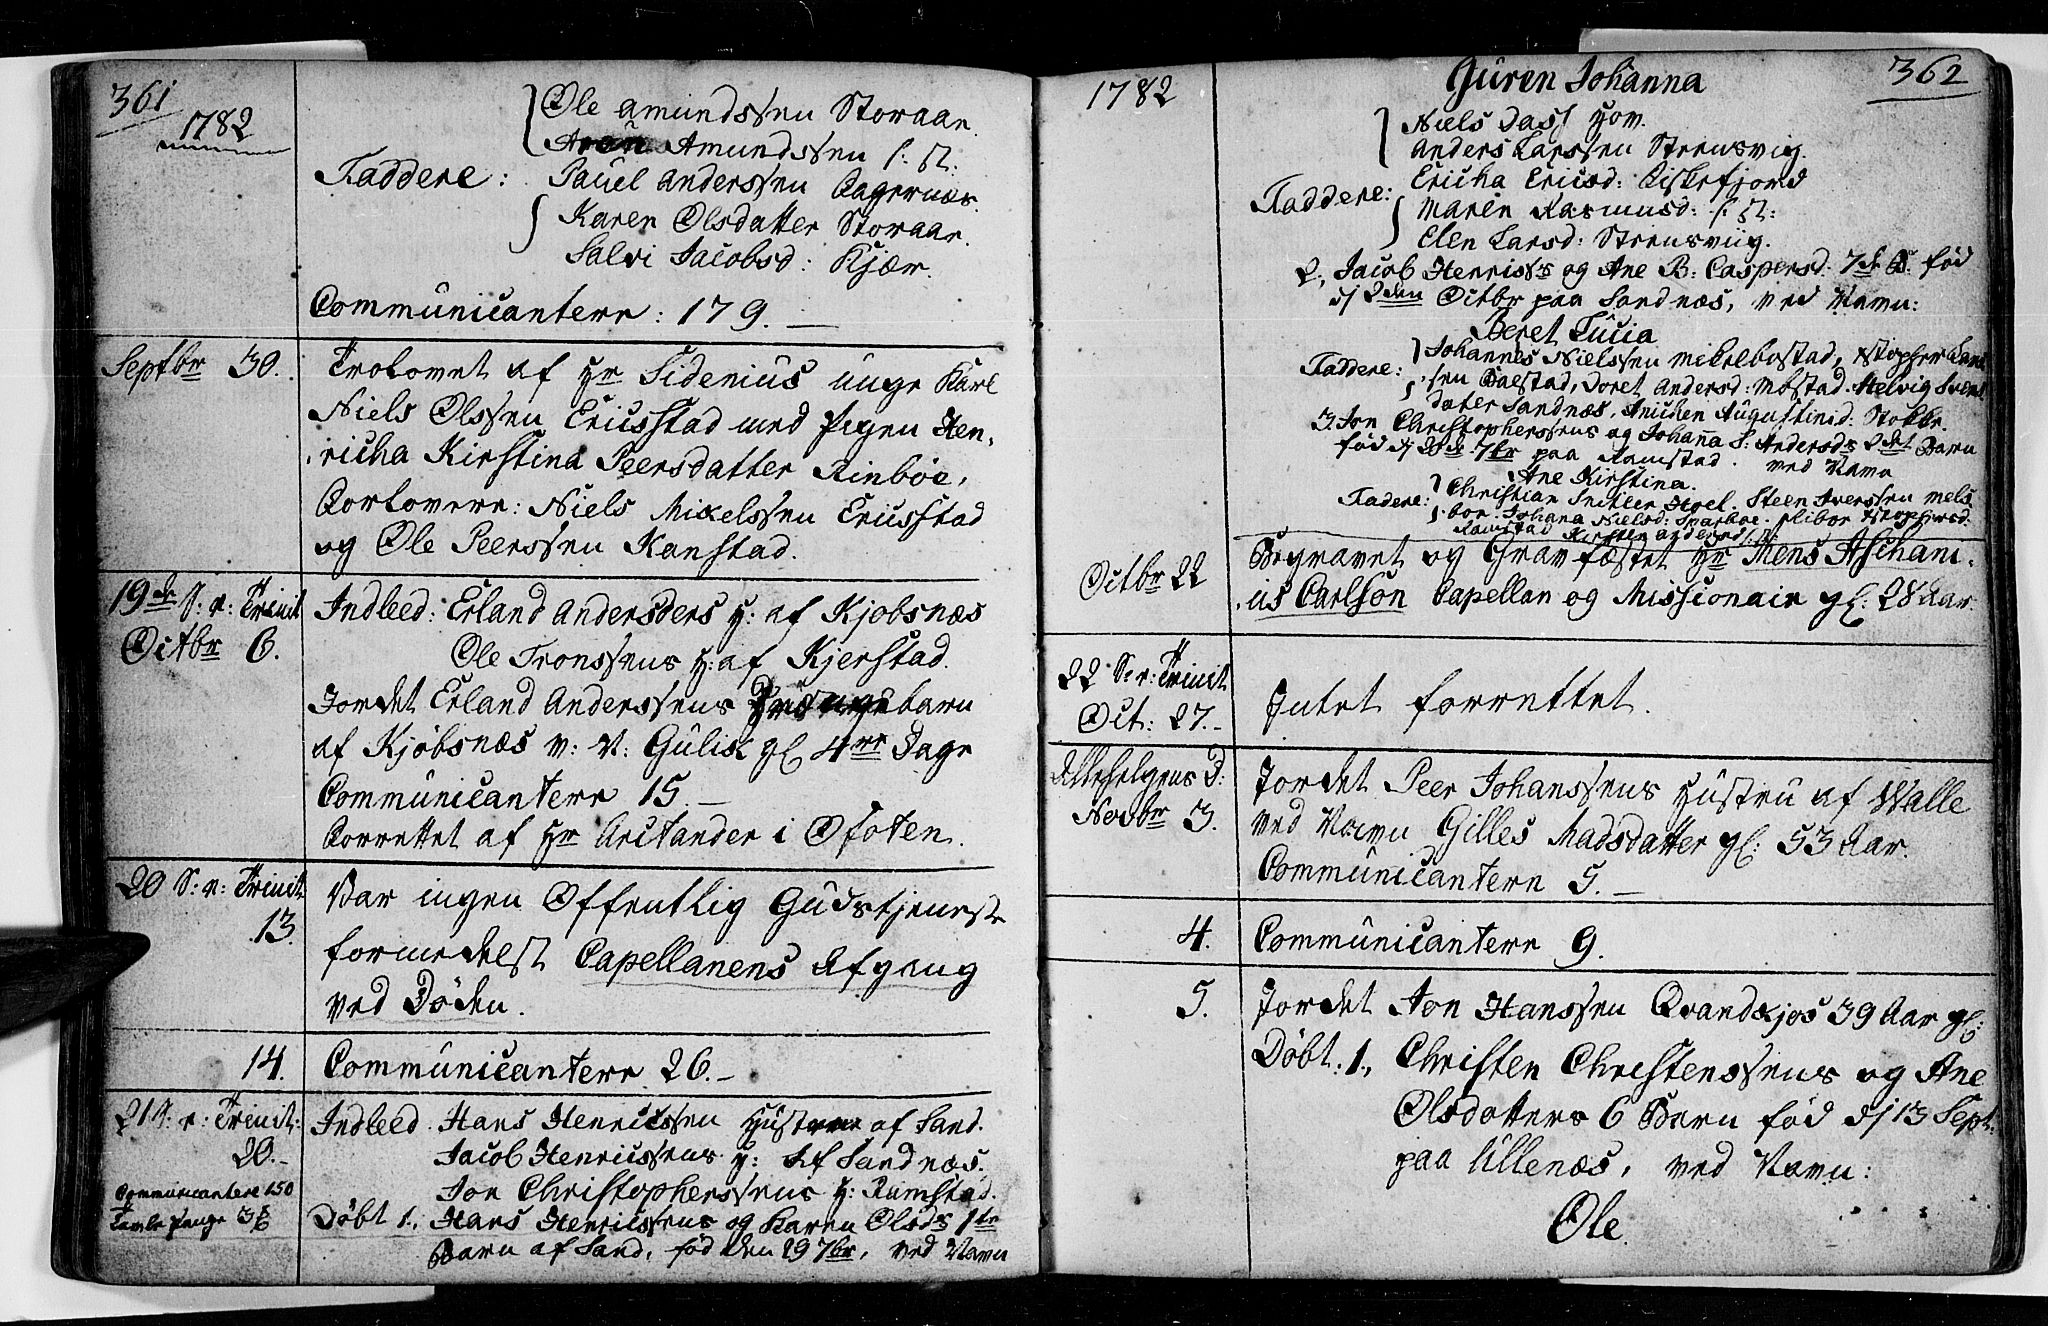 361
1782
Ole Amundssen Storaae.
Amundssen s: St:
Faddere: Pauel Anderssen Fagernæs.
Karen Olsdatter Storaae.
Salvi Jacobsd: Kjær.
Communicantere: 179.
Septbr 30.
Trolovet af Hr Sidenius unge Karl
Niels Olssen Ericsstad med Pigen Hen,
richa Kirstina Peersdatter Rinbøe,
Forlovere: Niels Mikelssen Ericsstad
og Ole Peerssen Kanstad.
19de S: p: Trinit
Octbr 6.
Indleed: Erland Andersders H: af Kjobsnæs
Ole Tronssens H: af Kjerstad.
Jordet Erland Anderssens barn
af Kjøbsnæs v: N: Gulick gl 4re Dage
Communicantere 15.
Forrettet af Hr Arctander i Ofoten.
20 S: p: Trinit
13.
Var ingen Offentlig Gudstjeneste
formedelst Capellanens Afgang
ved Døden.
14.
Communicantere 26.
21 S: p: Trinit:
20.
Communicantere 150
Tavle Penge
Indleed Hans Henricssen Hustrue af Sand.
Jacob Henricssens H: af Sandnæs.
Jon Christopherssens H: Ramstad.
Døbt 1., Hans Henricssens og Karen Olsds 1te
Barn af Sand, fød den 29 7br, ved Navn
1782
362
Guren Johanna
Niels Dass Hov.
Anders Larssen Strensvig.
Faddere: Ericha Ericsd: Fiskefjord
Maren Rasmusd: s: St:
Elen Larsd: Strensviig.
2, Jacob Henricss og Ane B: Caspersd: 7de B: fød
dj 2den Octbr paa Sandnæs, ved Navn:
Beret Lucia
Faddere: Johannes Nielssen Mikelbostad, Xstopher Lars
sen Balestad, Doret Andersd: Møstad. Helvig Svens
datter Sandnæs, Anichen Augustinid: Stokke.
3 Jon Christopherssens og Johanna S: Andersds 2det Barn
fød dj 20de 7br paa Ramstad. ved Navn
Ane Kirstina.
Fadere: Christian Snitler Hoel. Steen Iverssen Mels
boe. Johana Nielsd: Sparboe. Xstophersd:
Ramstad Kirsten Andersd: s: St:
Octbr 22
Begravet og Gravfæstet Hr Jens Aschani-
us Carlson Capellan og Missionair gl: 28 Aar
22 S: p: Trinit
Oct: 27.
Intet forrettet.
Allehelgens D:
Novbr 3.
Jordet Peer Johanssens Hustru af Walle
ved Navn Gilles Madsdatter gl: 53 Aar.
Communicantere 5.
4.
Communicantere 9.
5.
Jordet Jon Hanssen Qvandkjos 39 Aar gl:
Døbt: 1., Christen Christenssens og Ane
Olsdatters 6 Barn fød dj 13 Sept:
paa Ullenæs, ved Navn:
Ole